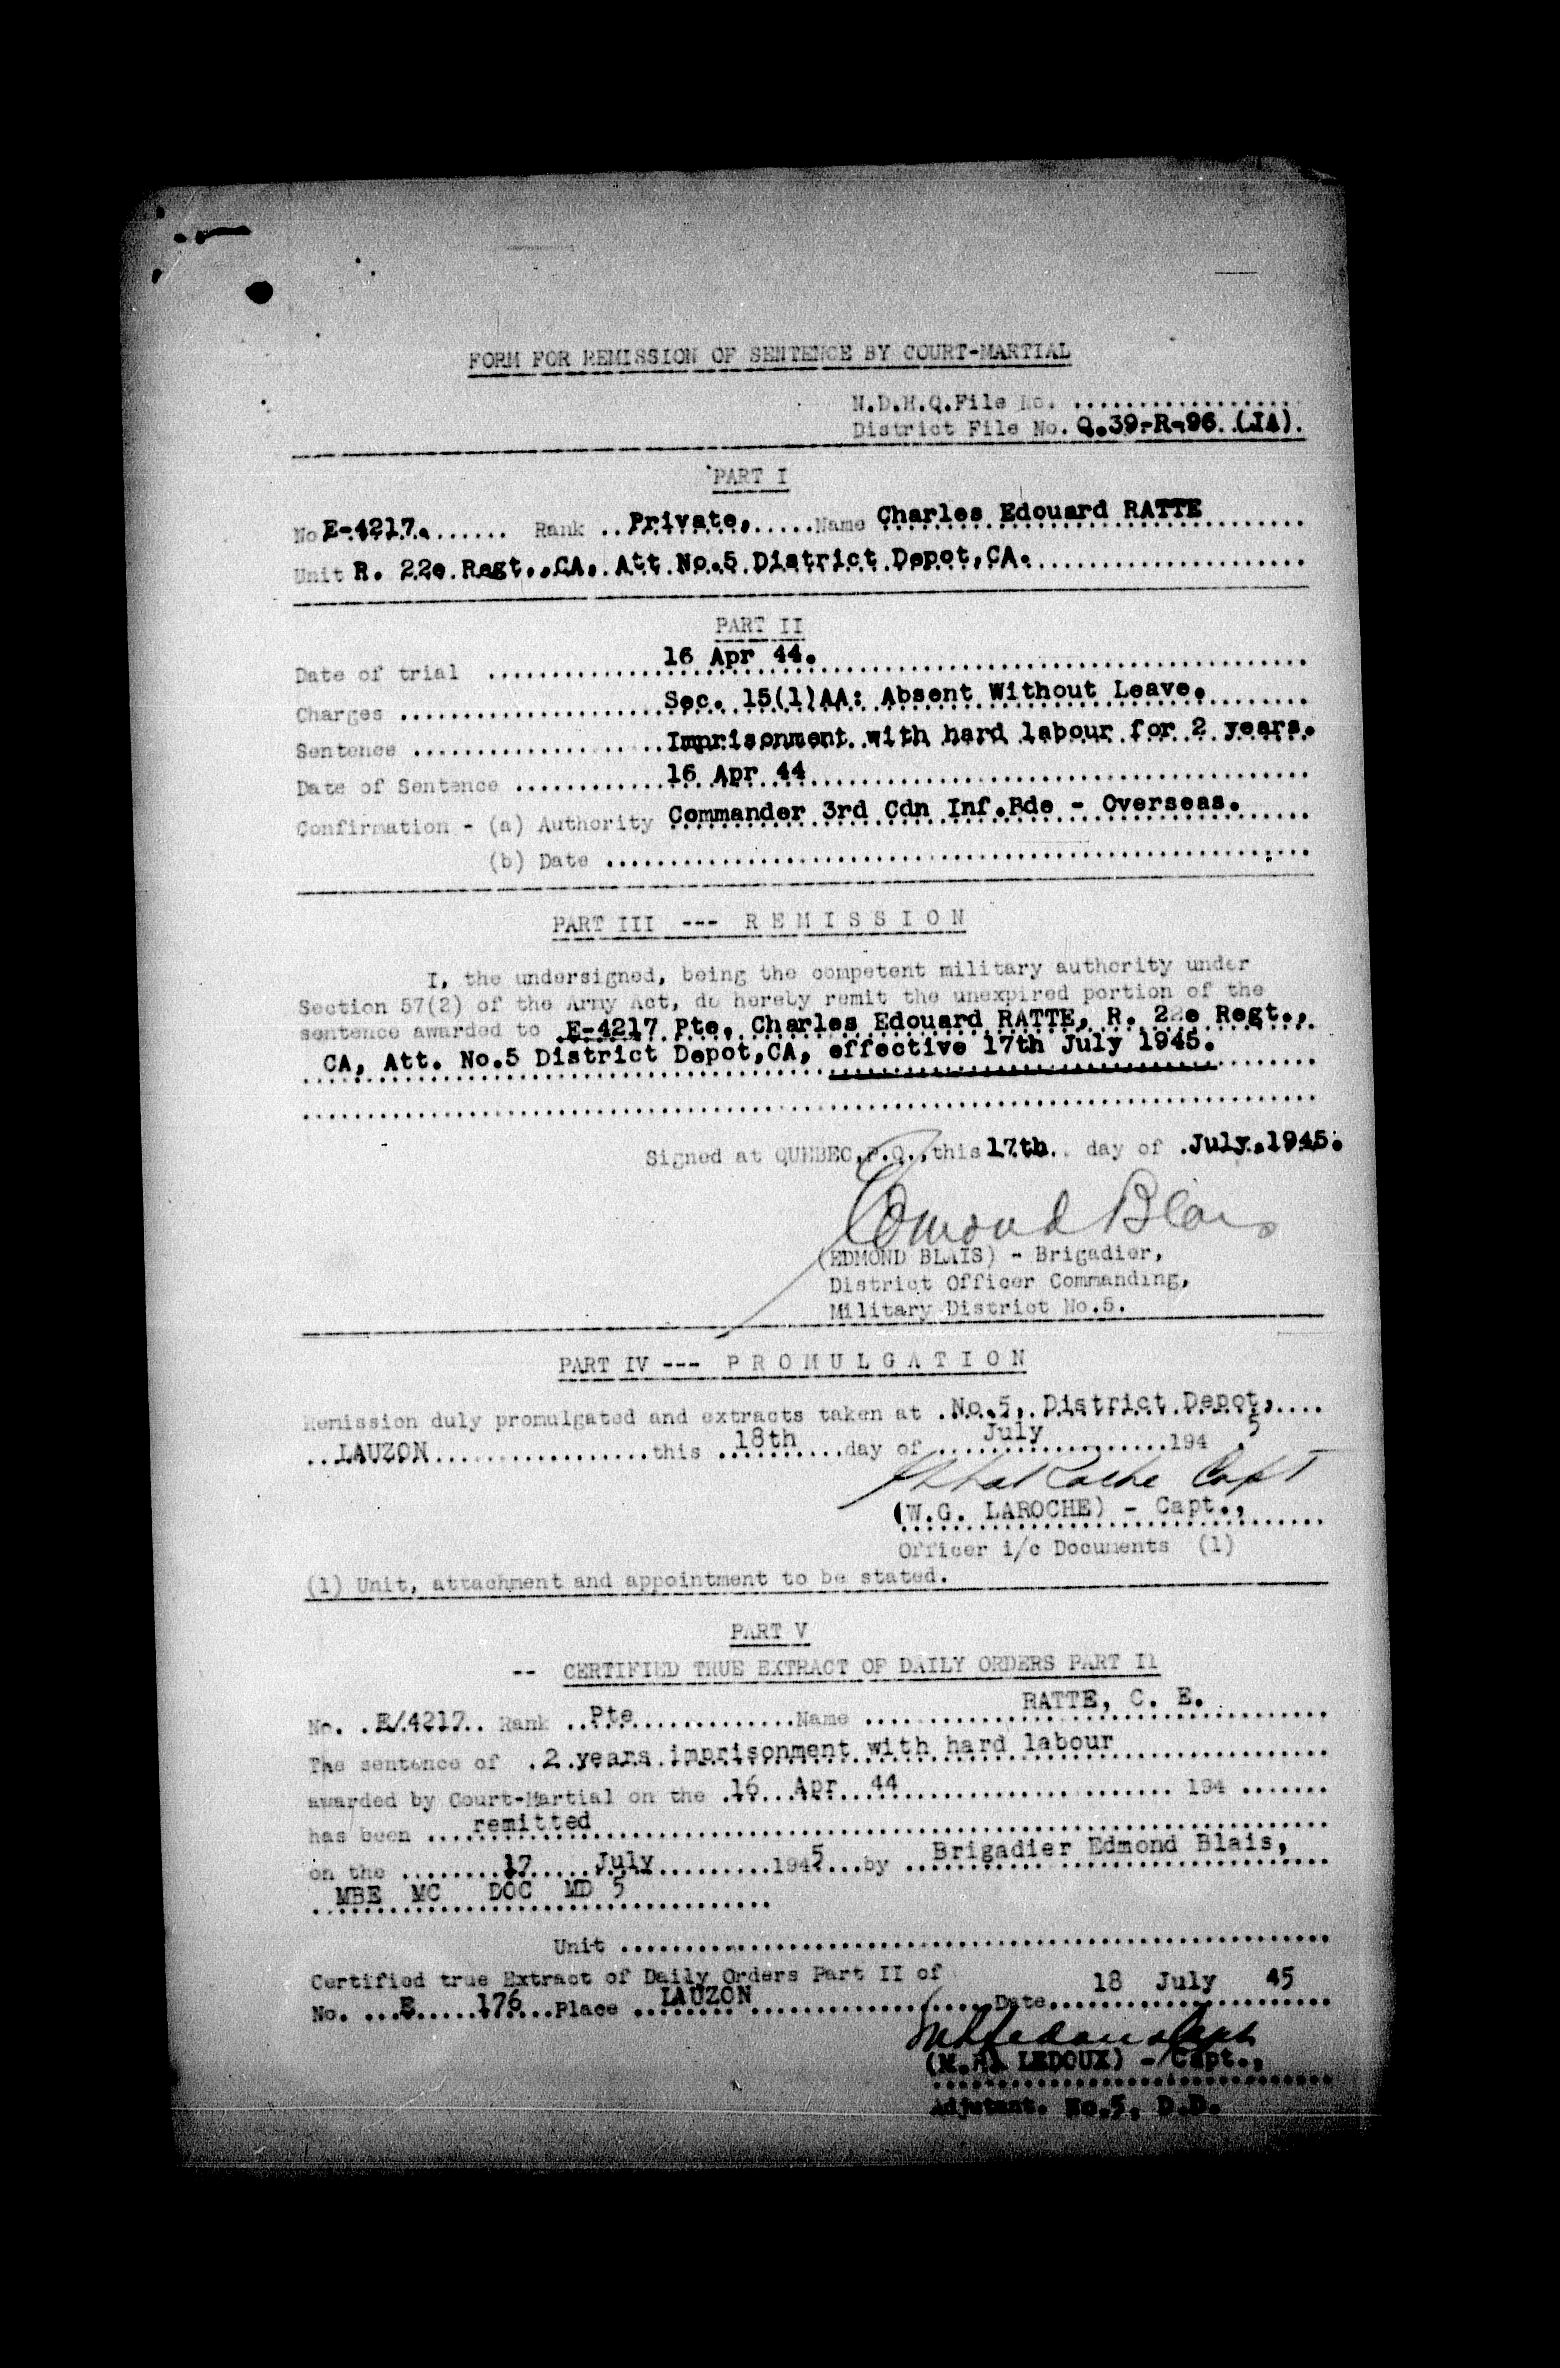 FORM FOR REMISSION OF SENTENCE BY COURT-MARTIAL
N.D.H.Q.File No. ..................
District File No. Q.39-R-96 (JA).
PART I
No E-4217....... Rank ..Private,.....Name Charles Edouard RATTE........
Unit R. 22e Regt.,CA, Att No.5 District Depot,CA......................
PART II
Date of trial .............16 Apr 44...............................
Charges ....................Sec. 15(1)AA: Absent Without Leave,........
Sentence ...................Imprisonment with hard labour for 2 years.
Date of Sentence ............16 Apr 44.................................
Confirmation - (a) Authority Commander 3rd Cdn Inf.Bde - Overseas.
(b) Date ......................................................
PART III --- R E M I S S I O N
I, the undersigned, being the competent military authority under
Section 57(2) of the Army Act, do hereby remit the unexpired portion of the
sentence awarded to E-4217 Pte. Charles Edouard RATTE, R. 22e Regt.,
CA, Att. No.5 District Depot,CA, effective 17th July 1945.
................................................................................
Signed at QUEBEC,P.Q.,this 17th.. day of .July.1945.
Edmond Blais
(EDMOND BLAIS) - Brigadier,
District Officer Commanding,
Military District No.5.
PART IV --- P R O M U L G A T I O N
Remission duly promulgated and extracts taken at .No.5, District Depot,....
...LAUZON.................this ..18th....day of ....July..........194 .5
Capt
(W.G. LAROCHE) - Capt.,
Officer i/c Documents (1)
(1) Unit, attachment and appointment to be stated.
PART V
-- CERTIFIED TRUE EXTRACT OF DAILY ORDERS PART II
No. .E/4217.. Rank ..Pte.............Name ............RATTE, C. E.........
The sentence of .2 years imprisonment with hard labour.................
awarded by Court-Martial on the .16...Apr...44..................... 194 .......
has been ....remitted..........................................................
on the ........17.....July.........1945...by ..Brigadier Edmond Blais,...
..MBE MC DOC MD 5............
Unit .......................................................
Certified true Extract of Daily Orders Part II of
No. ...E.....176...Place ..LAUZON...................Date....18 July 45
Capt
(M.H. LEDOUX) - Capt.,
Adjutant. No.5, D.D.